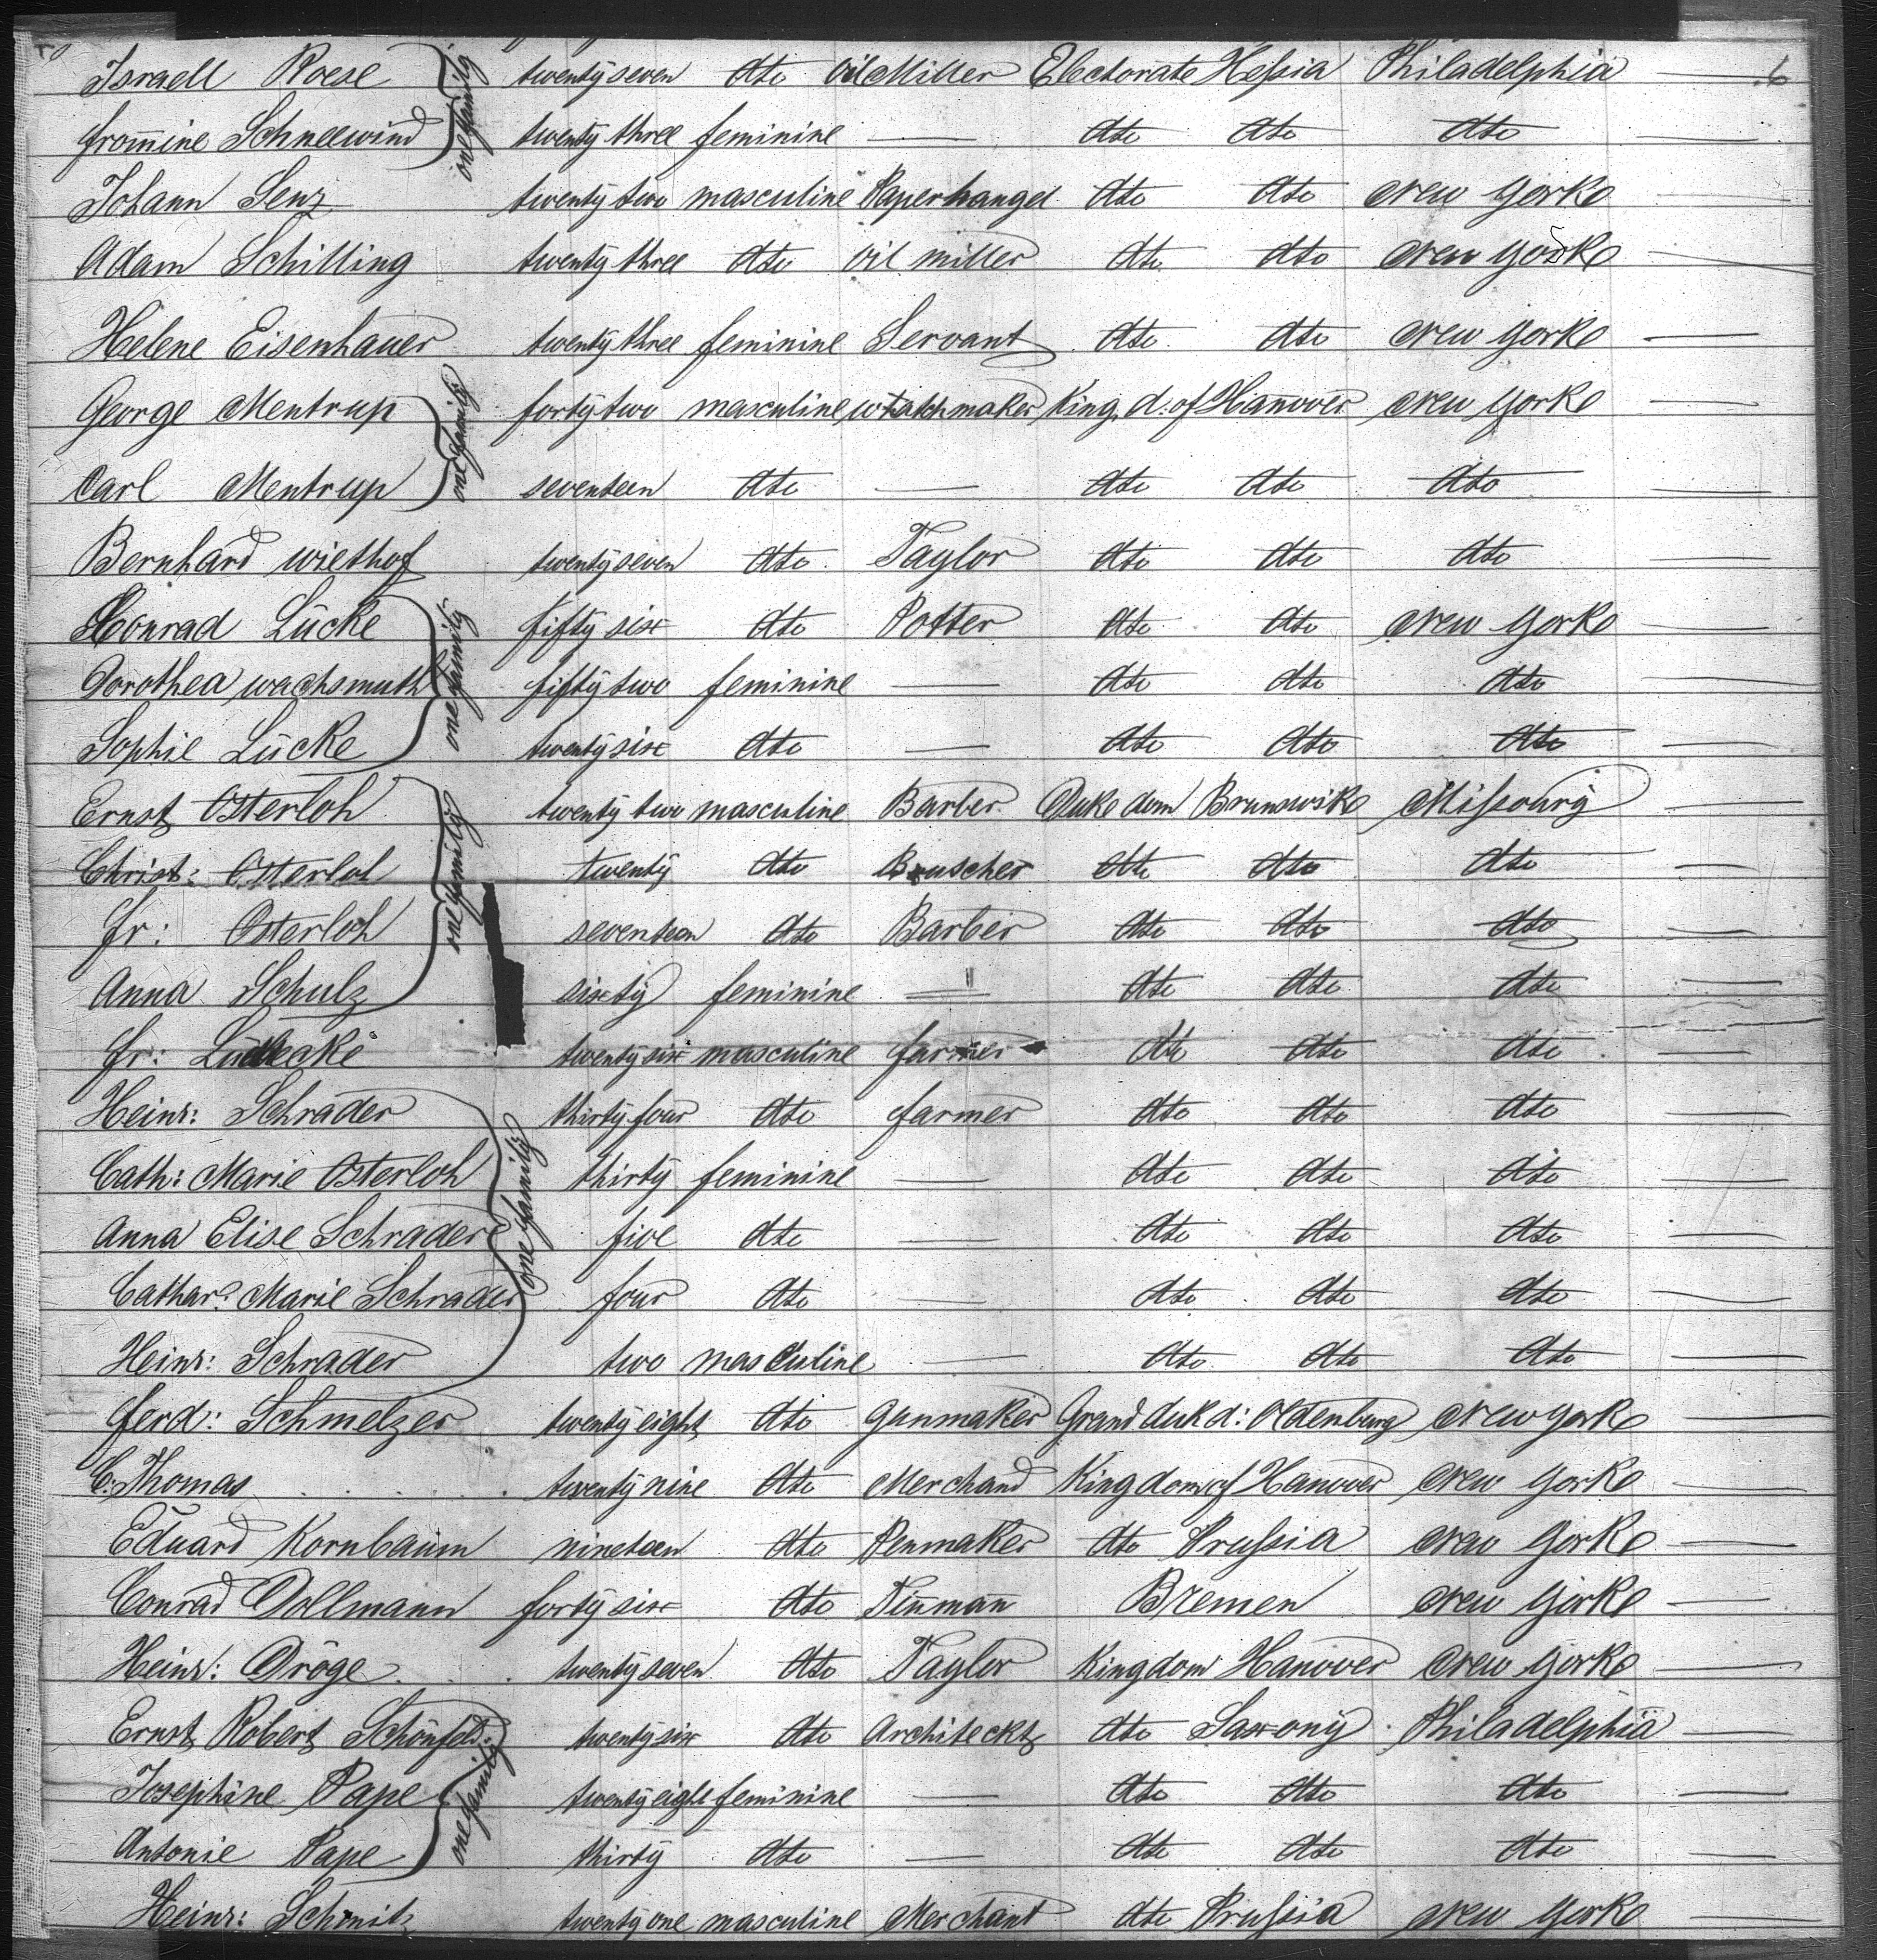 Israell Roese twenty seven dto oil Miller Electorate Heſsia Philadelphia — 6
one family
fromine Schneewind twenty three feminine — dto dto dto —
Johann Senz twenty two masculine Paperhanged dto dto New Yorke —
Adam Schilling twenty three dto oil miller dto dto New Yorke —
Helene Eisenhauer twenty three feminine Servant dto dto New Yorke —
George Mentrup forty two masculine watchmaker King d: of Hanover New Yorke —
one family
Carl Mentrup seventeen dto — dto dto dto —
Bernhard Wiethof twenty seven dto Taylor dto dto dto —
Conrad Lücke fifty six dto Potter dto dto New Yorke —
one family
Dorothea Wachsmuth fifty two feminine — dto dto dto —
Sophie Lücke twenty six dto — dto dto dto —
Ernst Osterloh twenty two masculine Barber Duke dom Brunswike Miſsoury —
one family
Christ: Osterloh twenty dto Bruscher dto dto dto —
fr: Osterloh seventeen dto Barber dto dto dto —
Anna Schulz sixty feminine — " dto dto dto —
fr: Lüdecke twenty six masculine farmer dto dto dto —
Heinr: Schrader thirty four dto farmer dto dto dto —
one family
Cath: Marie Osterloh thirty feminine — dto dto dto —
Anna Elise Schrader five dto — dto dto dto —
Cathar: Marie Schrader four dto — dto dto dto —
Heinr: Schrader two masculine — dto dto dto —
ferd: Schmelzer twenty eight dto Gunmaker Grand duk d: Oldenburg New Yorke —
C. Thomas twenty nine dto Merchand Kingdom of Hanover New Yorke —
Eduard Kornbaum nineteen dto Penmaker dto Pruſsia New Yorke —
Conrad Dollmann forty six dto Tinman Bremen New Yorke —
Heinr: Dröge twenty seven dto Taylor Kingdom Hanover New Yorke —
Ernst Robert Schönfeld twenty six dto Architeckt dto Saxony Philadelphia —
one family
Josephine Pape twenty eight feminine — dto dto dto —
Antonie Pape thirty dto — dto dto dto —
Heinr: Schmitz twenty one masculine Merchant dto Pruſsia New Yorke —